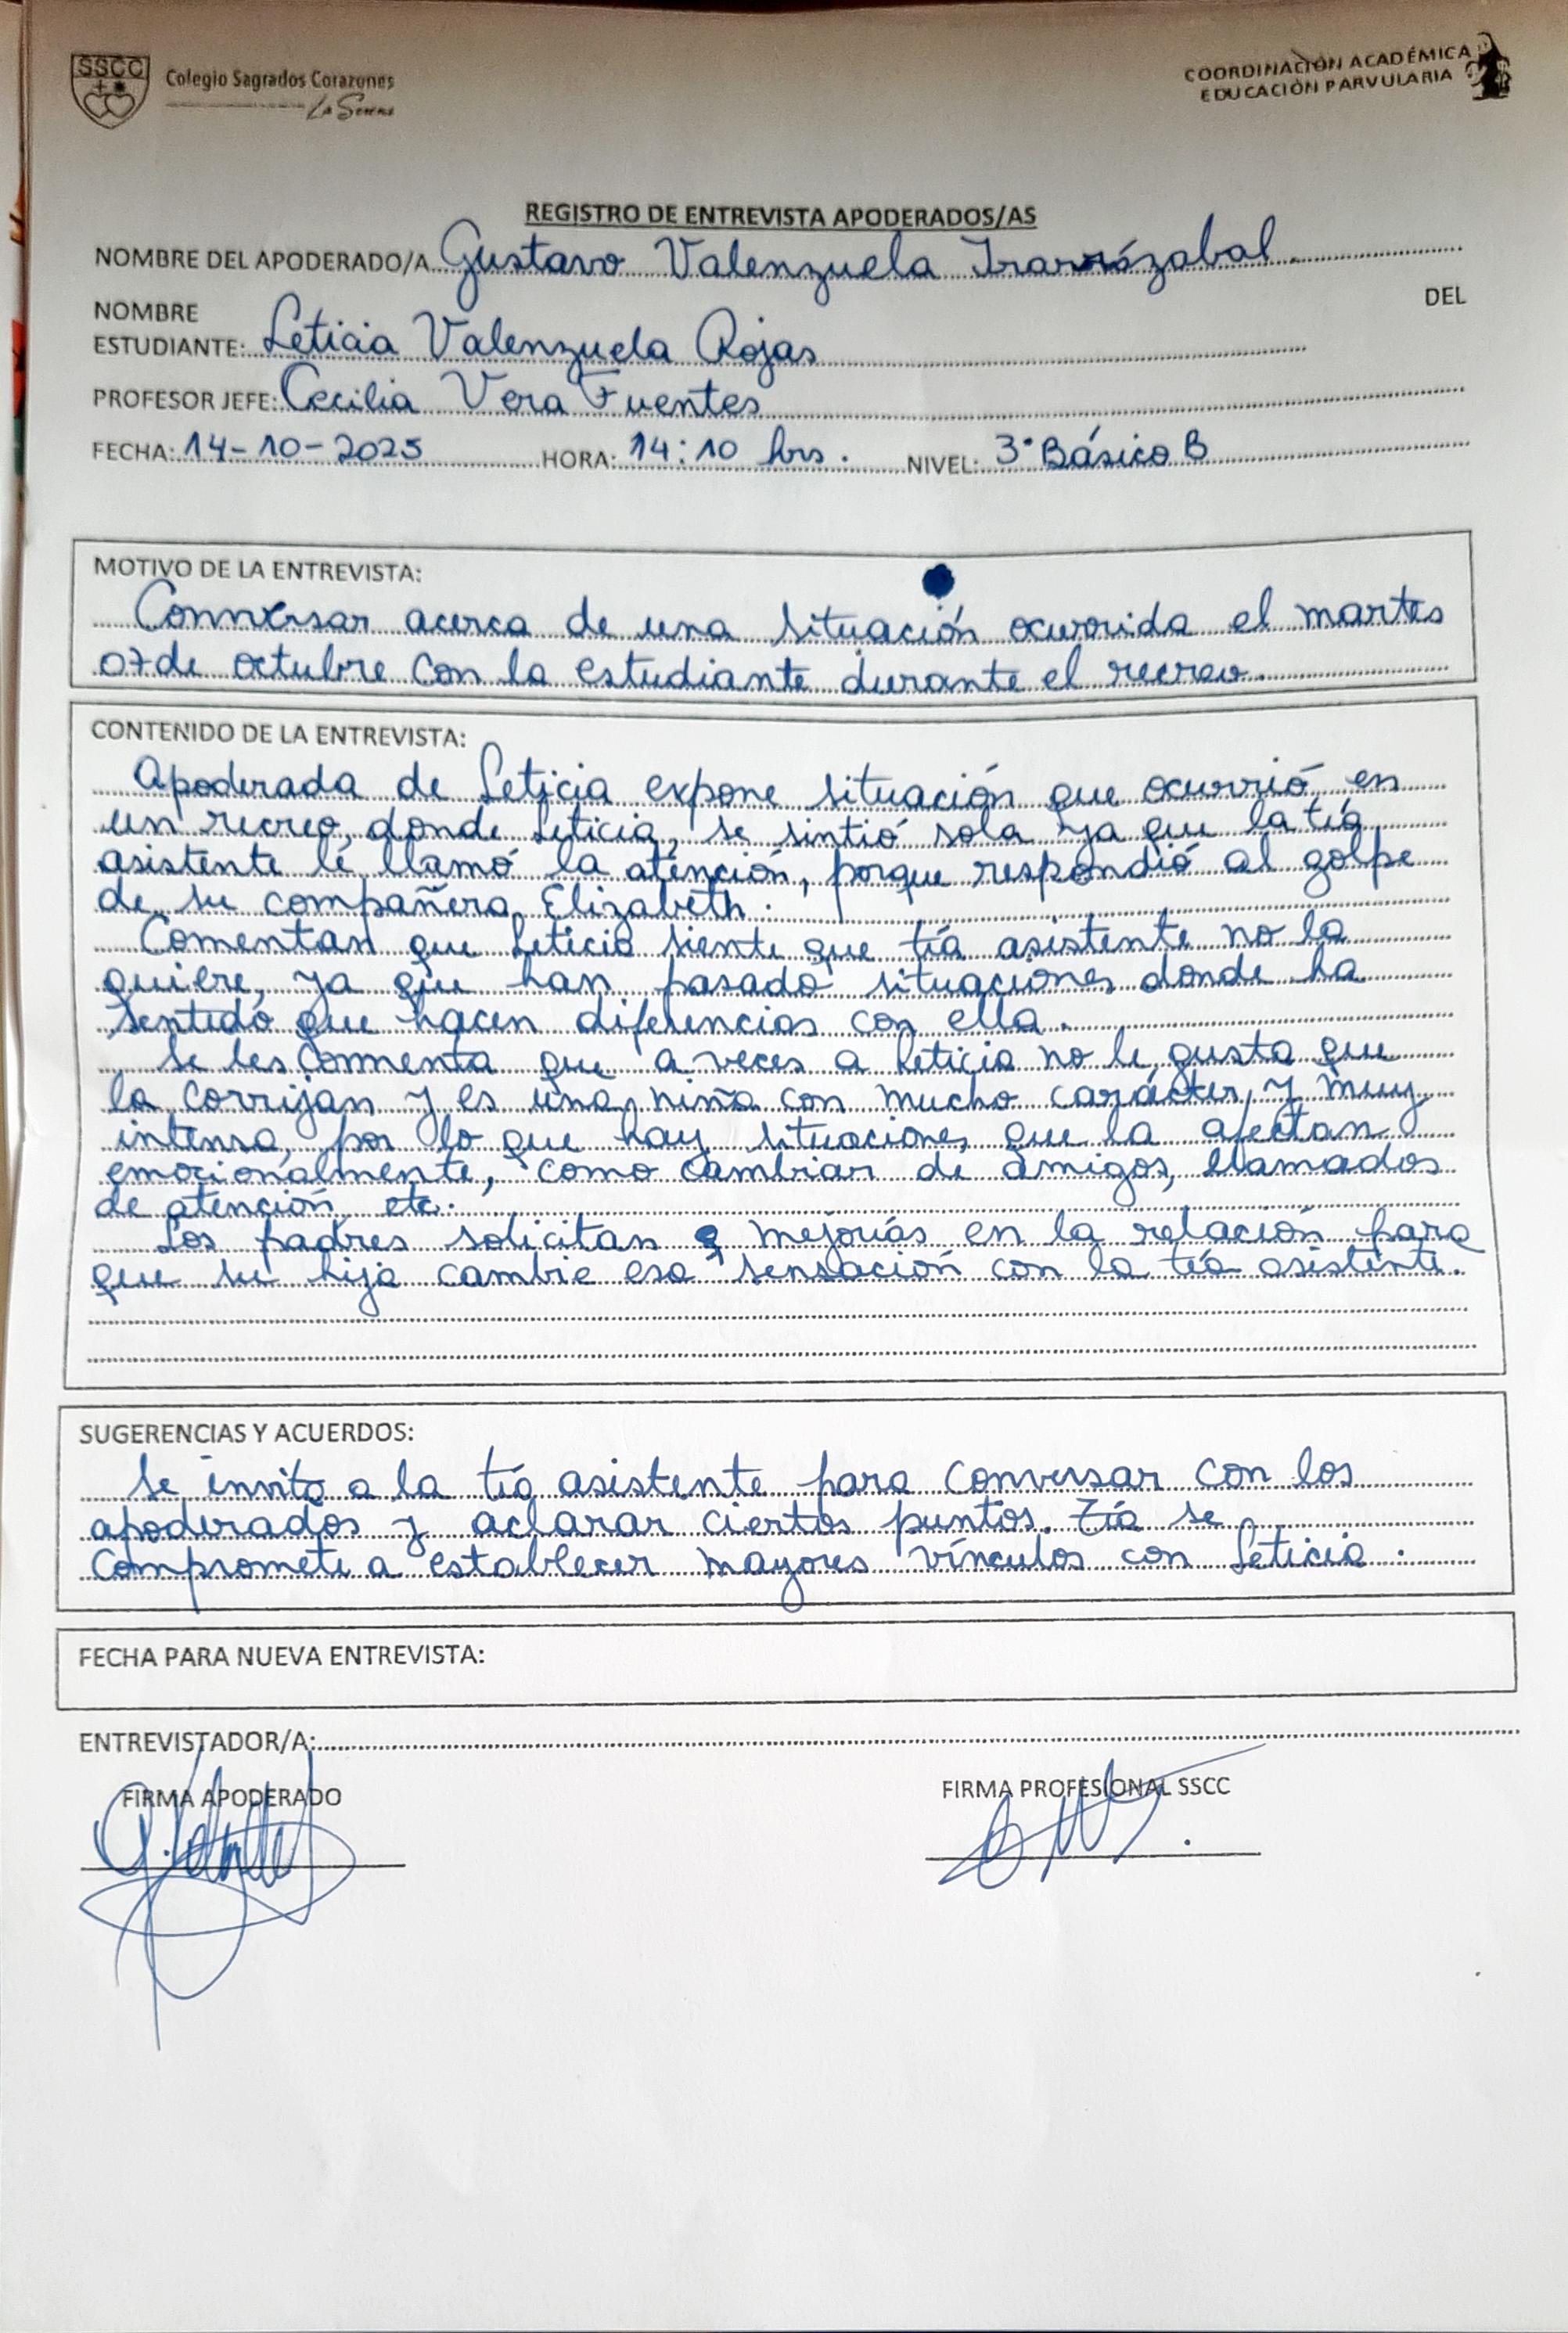 SSCC
Colegio Sagrados Corazones
La Serena
COORDINACIÓN ACADÉMICA
EDUCACIÓN PARVULARIA
REGISTRO DE ENTREVISTA APODERADOS/AS
NOMBRE DEL APODERADO/A Gustavo Valenzuela Irarrázabal.
NOMBRE DEL
ESTUDIANTE: Leticia Valenzuela Rojas
PROFESOR JEFE: Cecilia Vera Fuentes
FECHA: 14-10-2025 HORA: 14:10 hrs. NIVEL: 3° Básico B
MOTIVO DE LA ENTREVISTA:
Conversar acerca de una situación ocurrida el martes
07 de octubre con la estudiante durante el recreo.
CONTENIDO DE LA ENTREVISTA:
Apoderada de Leticia expone situación que ocurrió en
un recreo, donde Leticia, se sintió sola ya que la tía
asistente le llamó la atención, porque respondió al golpe
de su compañera Elizabeth.
Comentan que Leticia siente que tía asistente no la
quiere, ya que han pasado situaciones donde ha
sentido que hacen diferencias con ella.
Se les comenta que a veces a Leticia no le gusta que
la corrijan y es una niña con mucho carácter y muy
intensa, por lo que hay situaciones que la afectan
emocionalmente, como cambiar de amigos, llamados
de atención, etc.
Los padres solicitan mejorías en la relación para
que su hija cambie esa sensación con la tía asistente.
SUGERENCIAS Y ACUERDOS:
Se invita a la tía asistente para conversar con los
apoderados y aclarar ciertos puntos. Tía se
compromete a establecer mayores vínculos con Leticia.
FECHA PARA NUEVA ENTREVISTA:
ENTREVISTADOR/A:
FIRMA APODERADO FIRMA PROFESIONAL SSCC